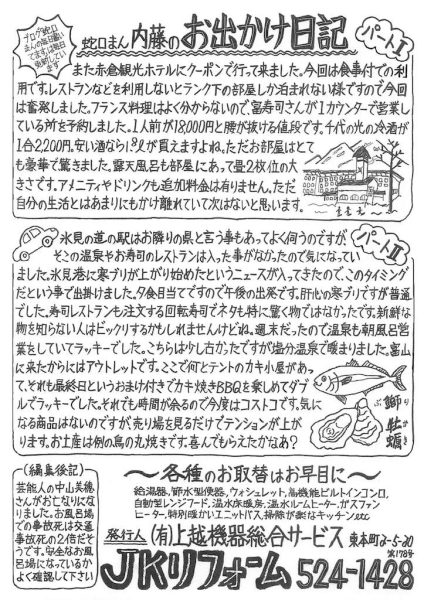 ブログ「蛇口まんの部屋」もまずは毎日更新しています
蛇口まん 内藤のお出かけ日記
パートⅠ
また赤倉観光ホテルにクーポンで行って来ました。今回は食事付での利
用です。レストランなどを利用しないとランク下の部屋しか泊まれない様ですので今回
は奮発しました。フランス料理はよく分からないので、富寿司さんが1カウンターで営業し
ている所を予約しました。1人前が18,000円と腰が抜ける値段です。千代の光の冷酒が
1合2,200円。安い酒なら1.8ℓが買えますよね。ただお部屋はとて
も豪華で驚きました。露天風呂も部屋にあって畳2枚位の大
きさです。アメニティやドリンクも追加料金は有りません。ただ
自分の生活とはあまりにもかけ離れていて次はないと思います。
パートⅡ
氷見の道の駅はお隣りの県と言う事もあってよく伺うのですが、
そこの温泉やお寿司のレストランは入った事がなかったので気になってい
ました。氷見港に寒ブリが上がり始めたというニュースが入ってきたので、このタイミング
だという事で出掛けました。夕食目当てですので午後の出発です。肝心の寒ブリですが普通
でした。寿司レストランも注文する回転寿司でネタも特に驚く物ではなかったです。新鮮な
物を知らない人はビックリするかもしれませんけどね。週末だったので温泉も朝風呂営
業をしていてラッキーでした。こちらは少し古かったですが塩分温泉で暖まりました。富山
に来たからにはアウトレットです。ここで何とテントのカキ小屋があっ
て、それも最終日というおまけ付きでカキ焼きBBQを楽しめてダブ
ルでラッキーでした。それでも時間が余るので今度はコストコです。気に
なる商品はないのですが売り場を見るだけでテンションが上が
ります。お土産は例の鳥の丸焼きです。喜んでもらえたかなあ?
鰤
ぶり
牡蠣
(編集後記)
芸能人の中山美穂
さんがお亡くなりになり
ました。お風呂場
での事故死は交通
事故死の2倍だそ
うです。安全なお風
呂場になっているか
よく確認して下さい
〜各種のお取替はお早目に〜
給湯器、節水型便器、ウォシュレット、高機能ビルトインコンロ、
自動型レンジフード、温水床暖房、温水ルームヒーター、ガスファン
ヒーター、特別暖かいユニットバス、掃除が楽なキッチンetc
発行人 (有)上越機器総合サービス 東本町3-5-20
第178号
JKリフォーム 524-1428